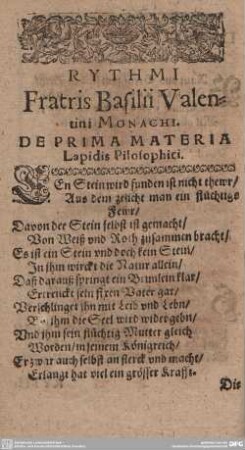 RYTHMI
Fratris Basilii Valen-
tini MONACHI.
DE PRIMA MATERIA
Lapidis Pilosophici.
EEn Stein wird funden ist nicht thewr/
Aus dem zeucht man ein flüchtigs
Fewr/
Davon der Stein selbst ist gemacht/
Von Weiß vnd Roth zusammen bracht/
Es ist ein Stein vnd doch kein Stein/
In ihm wirckt die Natur allein/
Daß darauß springt ein Brünlein klar/
Ertrenckt sein fixen Vater gar/
Verschlinget ihn mit Leib vnd Lebn/
ihm die Seel wird widergebn/
Vnd ihm sein flüchtig Mutter gleich
Worden/in seinem Königreich/
Er zwar auch selbst an sterck vnd macht/
Erlangt hat viel ein grösser Krafft.
Die